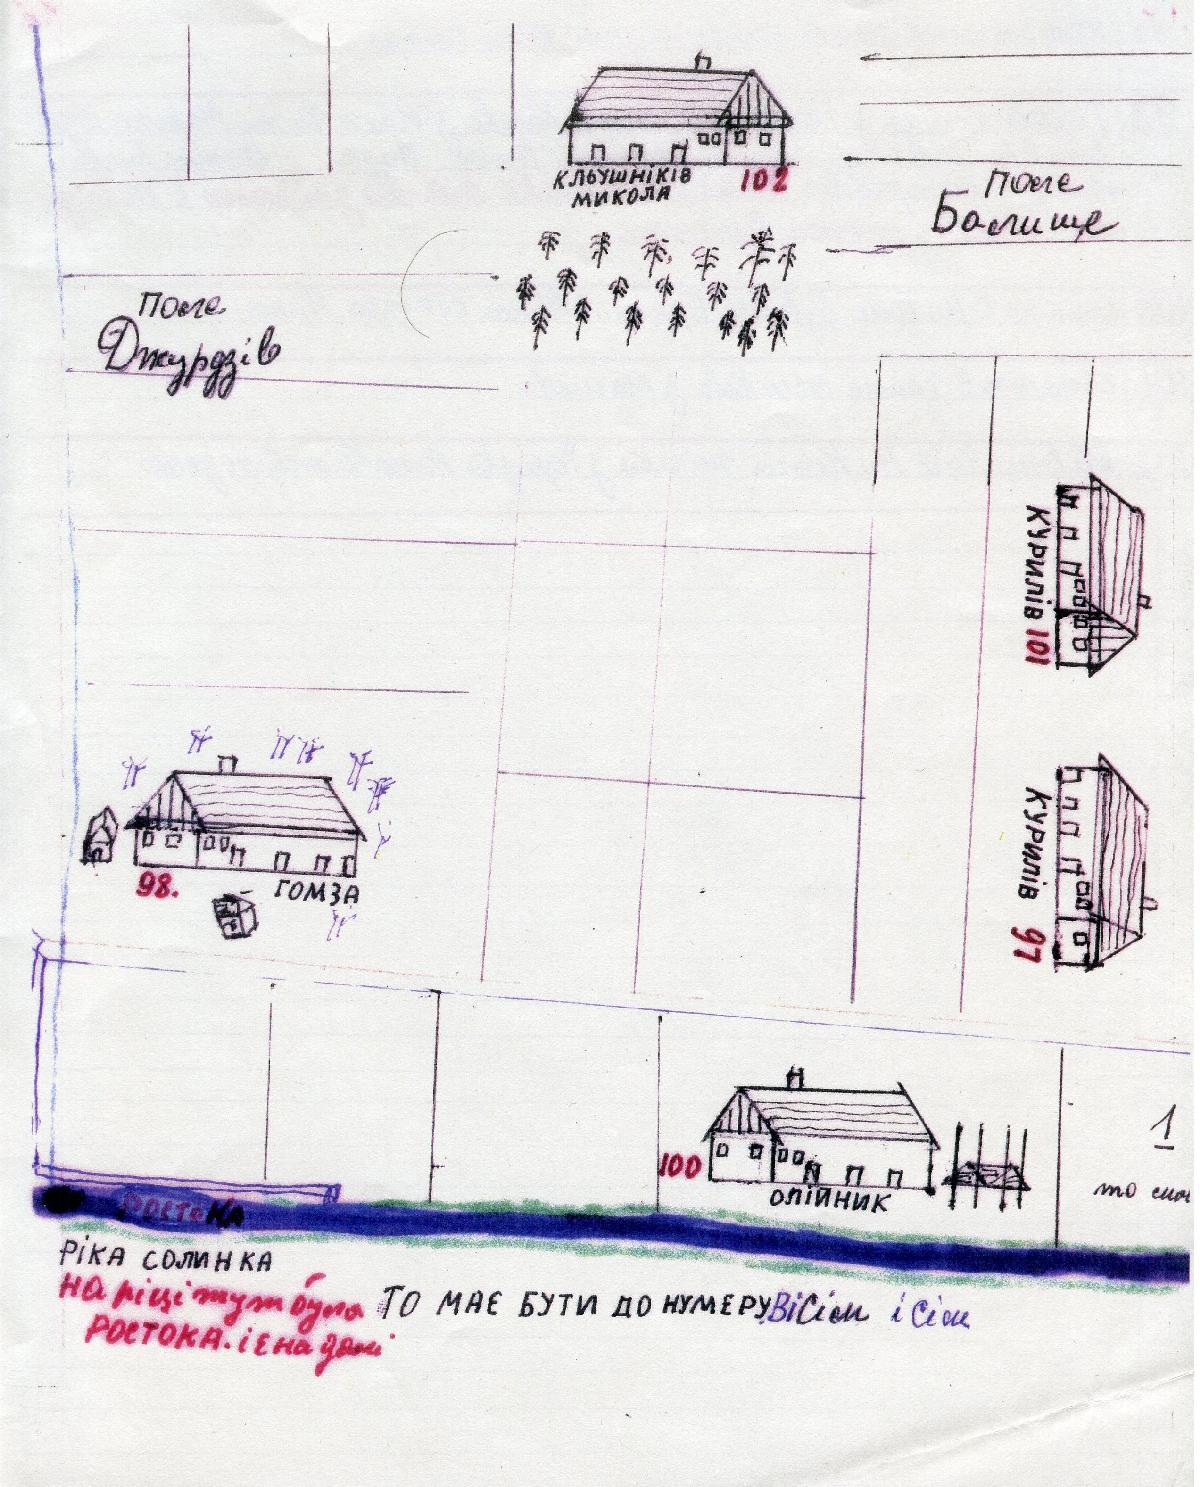 КЛЬУШНІКІВ 102
МИКОЛА
Поле
Балище
Поле
Джурдзів
КУРИЛІВ 101
КУРИЛІВ 97
98. ГОМЗА
100
ОЛІЙНИК
1
то
РОСТОКА
РІКА СОЛИНКА
На ріці тут була
РОСТОКА. і є на далі
ТО МАЄ БУТИ ДО НУМЕРУ ВіСім і Сім